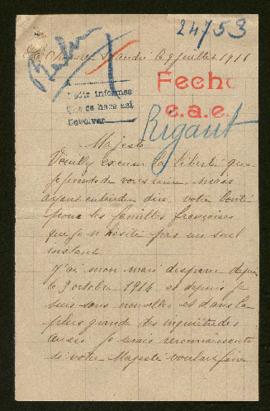 24/53
le 9 juillet 1916
Fecho
e.a.e.
Pedir informes
Devolver
Rigaut
Majesté
Veuillez excuser la liberté que
je prends de vous mais
ayant entendu dire votre bonté
pour les familles françaises
que je n'hésite pas un seul
instant
J'ai mon mari disparu depuis
le 3 octobre 1914 et depuis je
suis sans nouvelles et dans la
plus grande des inquiétudes
aussi je serais reconnaissante
si votre Majesté voulait faire